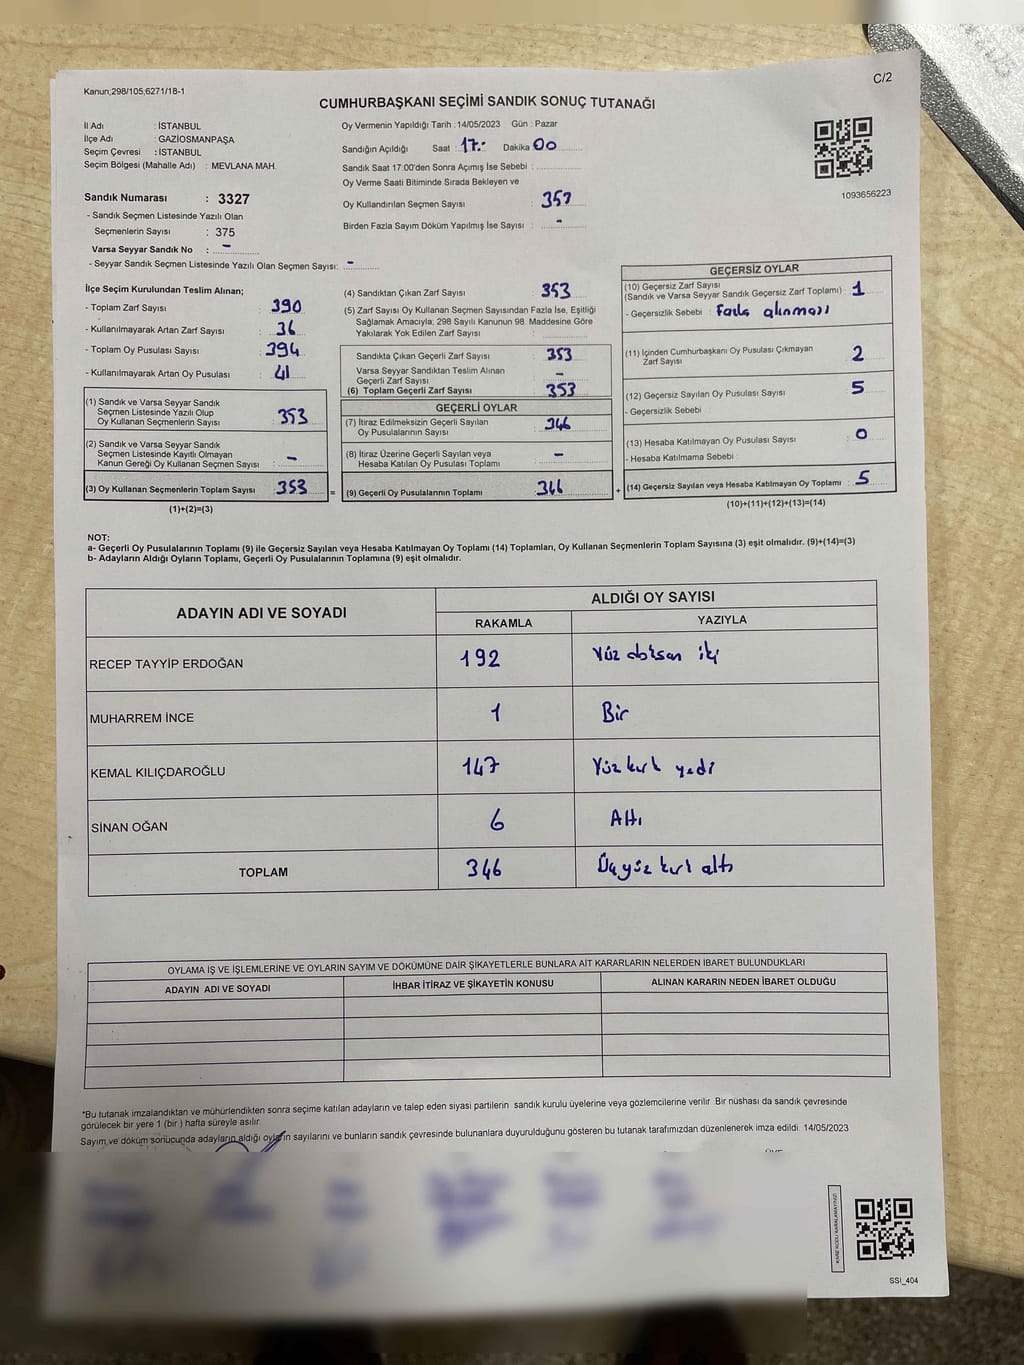 C/2
Kanun;298/105,6271/18-1
CUMHURBAŞKANI SEÇİMİ SANDIK SONUÇ TUTANAĞI
İl Adı : İSTANBUL
İlçe Adı : GAZİOSMANPAŞA
Seçim Çevresi : İSTANBUL
Seçim Bölgesi (Mahalle Adı) : MEVLANA MAH.
Sandık Numarası : 3327
- Sandık Seçmen Listesinde Yazılı Olan
Seçmenlerin Sayısı : 375
Varsa Seyyar Sandık No : -
- Seyyar Sandık Seçmen Listesinde Yazılı Olan Seçmen Sayısı: -
Oy Vermenin Yapıldığı Tarih :14/05/2023 Gün : Pazar
Sandığın Açıldığı Saat : 17:. Dakika 00
Sandık Saat 17:00'den Sonra Açılmış İse Sebebi :
Oy Verme Saati Bitiminde Sırada Bekleyen ve
Oy Kullandırılan Seçmen Sayısı : 353
Birden Fazla Sayım Döküm Yapılmış İse Sayısı : -
1093656223
İlçe Seçim Kurulundan Teslim Alınan;
- Toplam Zarf Sayısı : 390
- Kullanılmayarak Artan Zarf Sayısı : 36
- Toplam Oy Pusulası Sayısı : 394
- Kullanılmayarak Artan Oy Pusulası : 41
(1) Sandık ve Varsa Seyyar Sandık
Seçmen Listesinde Yazılı Olup
Oy Kullanan Seçmenlerin Sayısı : 353
(2) Sandık ve Varsa Seyyar Sandık
Seçmen Listesinde Kayıtlı Olmayan
Kanun Gereği Oy Kullanan Seçmen Sayısı : -
(3) Oy Kullanan Seçmenlerin Toplam Sayısı : 353
(1)+(2)=(3)
=
(4) Sandıktan Çıkan Zarf Sayısı : 353
(5) Zarf Sayısı Oy Kullanan Seçmen Sayısından Fazla İse, Eşitliği
Sağlamak Amacıyla; 298 Sayılı Kanunun 98. Maddesine Göre
Yakılarak Yok Edilen Zarf Sayısı :
Sandıkta Çıkan Geçerli Zarf Sayısı : 353
Varsa Seyyar Sandıktan Teslim Alınan
Geçerli Zarf Sayısı : -
(6) Toplam Geçerli Zarf Sayısı : 353
GEÇERLİ OYLAR
(7) İtiraz Edilmeksizin Geçerli Sayılan
Oy Pusulalarının Sayısı : 346
(8) İtiraz Üzerine Geçerli Sayılan veya
Hesaba Katılan Oy Pusulası Toplamı : -
(9) Geçerli Oy Pusulalarının Toplamı : 346
+
GEÇERSİZ OYLAR
(10) Geçersiz Zarf Sayısı
(Sandık ve Varsa Seyyar Sandık Geçersiz Zarf Toplamı) : 1
- Geçersizlik Sebebi : Fazla alınması
(11) İçinden Cumhurbaşkanı Oy Pusulası Çıkmayan
Zarf Sayısı : 2
(12) Geçersiz Sayılan Oy Pusulası Sayısı : 5
- Geçersizlik Sebebi :
(13) Hesaba Katılmayan Oy Pusulası Sayısı : 0
- Hesaba Katılmama Sebebi :
(14) Geçersiz Sayılan veya Hesaba Katılmayan Oy Toplamı : 5
(10)+(11)+(12)+(13)=(14)
NOT:
a- Geçerli Oy Pusulalarının Toplamı (9) ile Geçersiz Sayılan veya Hesaba Katılmayan Oy Toplamı (14) Toplamları, Oy Kullanan Seçmenlerin Toplam Sayısına (3) eşit olmalıdır. (9)+(14)=(3)
b- Adayların Aldığı Oyların Toplamı, Geçerli Oy Pusulalarının Toplamına (9) eşit olmalıdır.
ADAYIN ADI VE SOYADI ALDIĞI OY SAYISI
RAKAMLA YAZIYLA
RECEP TAYYİP ERDOĞAN 192 Yüz doksan iki
MUHARREM İNCE 1 Bir
KEMAL KILIÇDAROĞLU 147 Yüz kırk yedi
SİNAN OĞAN 6 Altı
TOPLAM 346 Üçyüz kırk altı
OYLAMA İŞ VE İŞLEMLERİNE VE OYLARIN SAYIM VE DÖKÜMÜNE DAİR ŞİKAYETLERLE BUNLARA AİT KARARLARIN NELERDEN İBARET BULUNDUKLARI
ADAYIN ADI VE SOYADI İHBAR İTİRAZ VE ŞİKAYETİN KONUSU ALINAN KARARIN NEDEN İBARET OLDUĞU
*Bu tutanak imzalandıktan ve mühürlendikten sonra seçime katılan adayların ve talep eden siyasi partilerin sandık kurulu üyelerine veya gözlemcilerine verilir. Bir nüshası da sandık çevresinde
görülecek bir yere 1 (bir ) hafta süreyle asılır.
Sayım ve döküm sonucunda adayların aldığı oyların sayılarını ve bunların sandık çevresinde bulunanlara duyurulduğunu gösteren bu tutanak tarafımızdan düzenlenerek imza edildi. 14/05/2023
KAREKODU KARALAMAYINIZ!
SSI_404